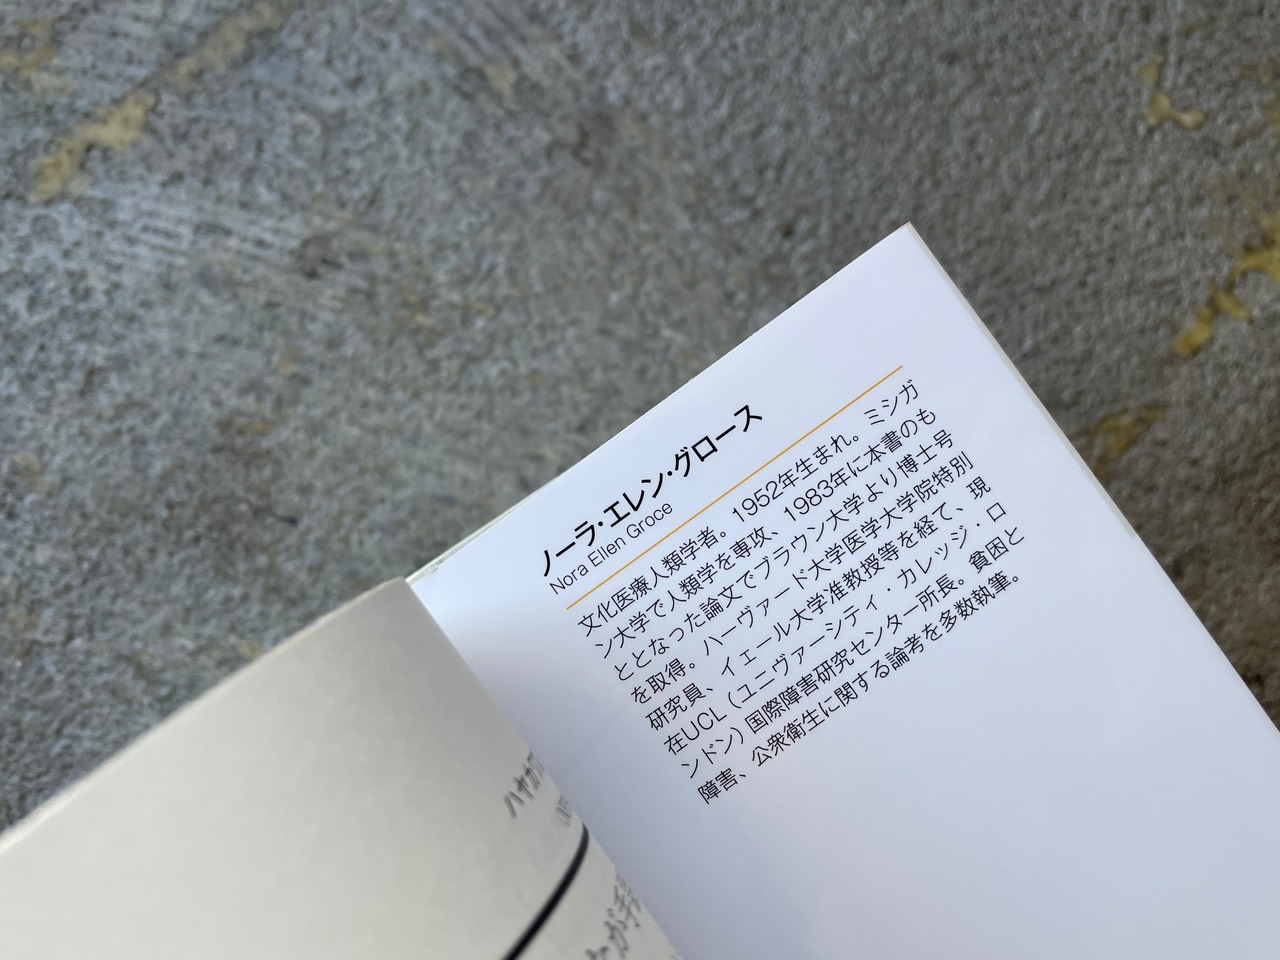 ノーラ・エレン・グロース
Nora Ellen Groce
文化医療人類学者。1952年生まれ。ミシガ
ン大学で人類学を専攻、1983年に本書のも
ととなった論文でブラウン大学より博士号
を取得。ハーヴァード大学医学大学院特別
研究員、イェール大学准教授等を経て、現
在UCL（ユニヴァーシティ・カレッジ・ロ
ンドン）国際障害研究センター所長。貧困と
障害、公衆衛生に関する論考を多数執筆。